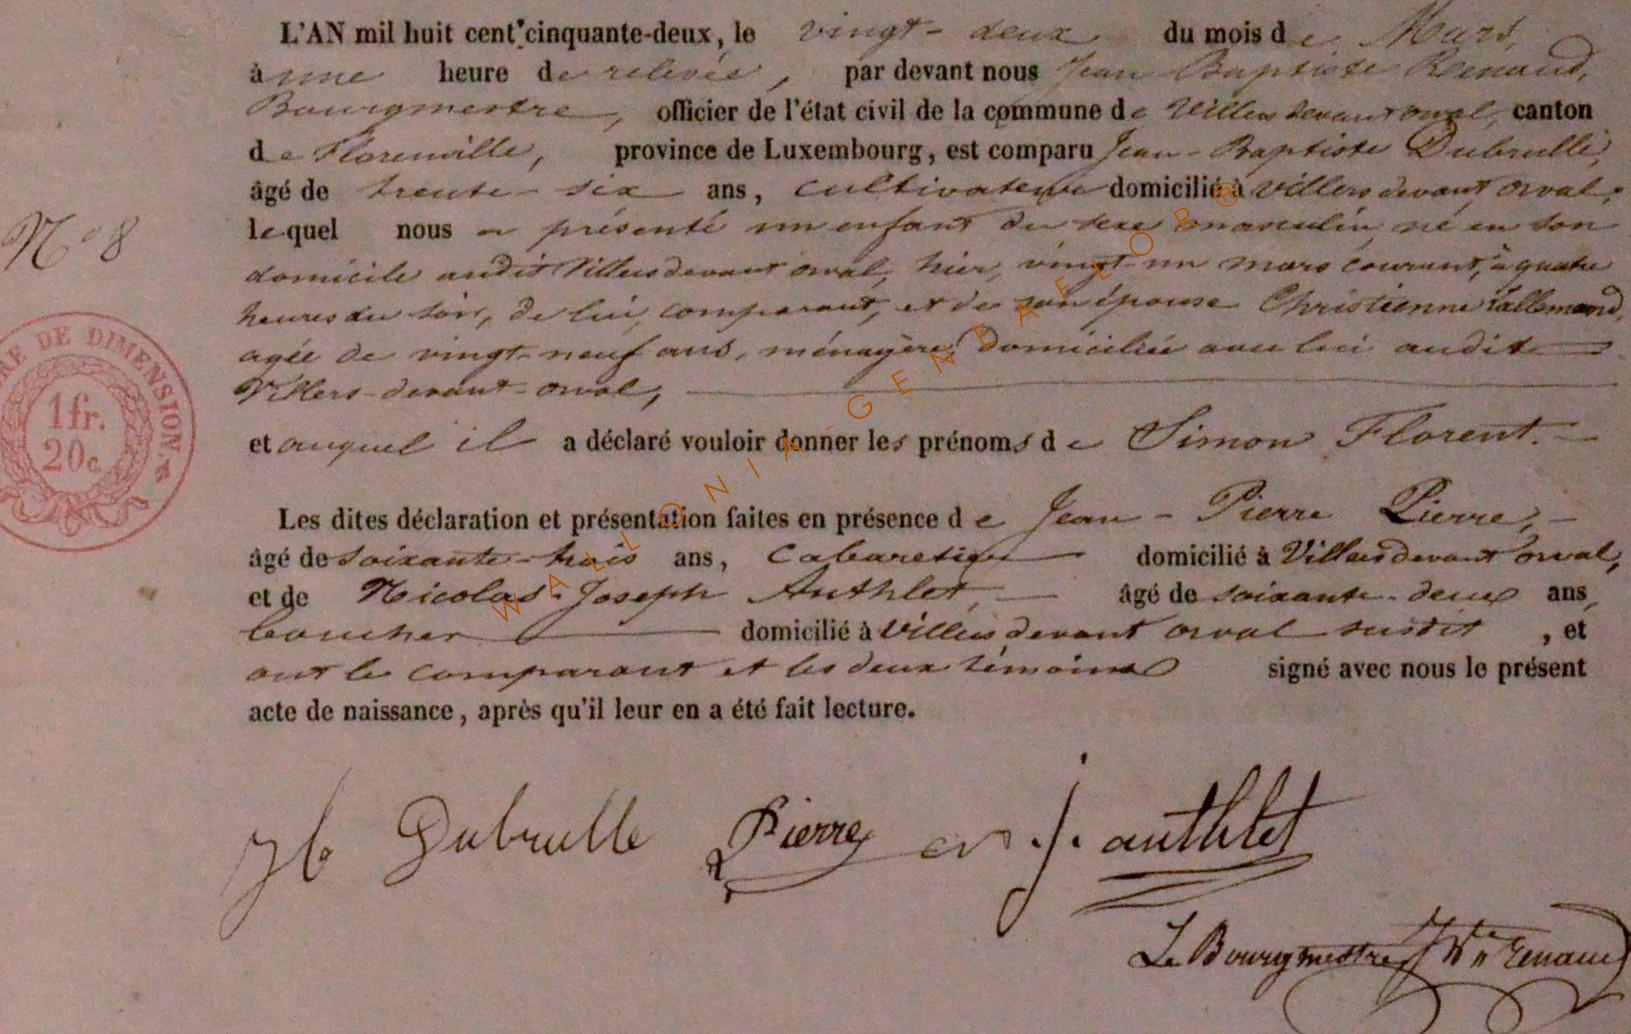 L'AN mil huit cent cinquante-deux, le vingt-deux du mois de Mars,
à une heure de relevée, par devant nous Jean Baptiste Renaud,
Bourgmestre, officier de l'état civil de la commune de Villers devant orval, canton
de Florenville, province de Luxembourg, est comparu Jean-Baptiste Dubrulle,
âgé de trente-six ans, cultivateur domicilié à Villers devant orval,
lequel nous a présenté un enfant du sexe masculin né en son
N° 8
domicile audit Villers devant orval, hier, vingt-un mars courant, à quatre
heures du soir, de lui, comparant, et de son épouse Christienne Lallemand,
agée de vingt-neuf ans, ménagère, domiciliée avec lui audit
Villers-devant-orval,
et auquel il a déclaré vouloir donner les prénoms de Simon Florent.
RE DE DIMENSION.
1 fr.
20 c.
Les dites déclaration et présentation faites en présence de Jean-Pierre Pierre,
âgé de soixante-trois ans, Cabaretier domicilié à Villers devant orval,
et de Nicolas-Joseph Authlet, âgé de soixante-deux ans,
boucher domicilié à Villers devant orval susdit, et
ont le comparant et les deux témoins signé avec nous le présent
acte de naissance, après qu'il leur en a été fait lecture.
Jb Dubrulle Pierre n. j. authlet
Le Bourgmestre, Jn Bte Renaud
WALLONIA-GENEAFLOR®